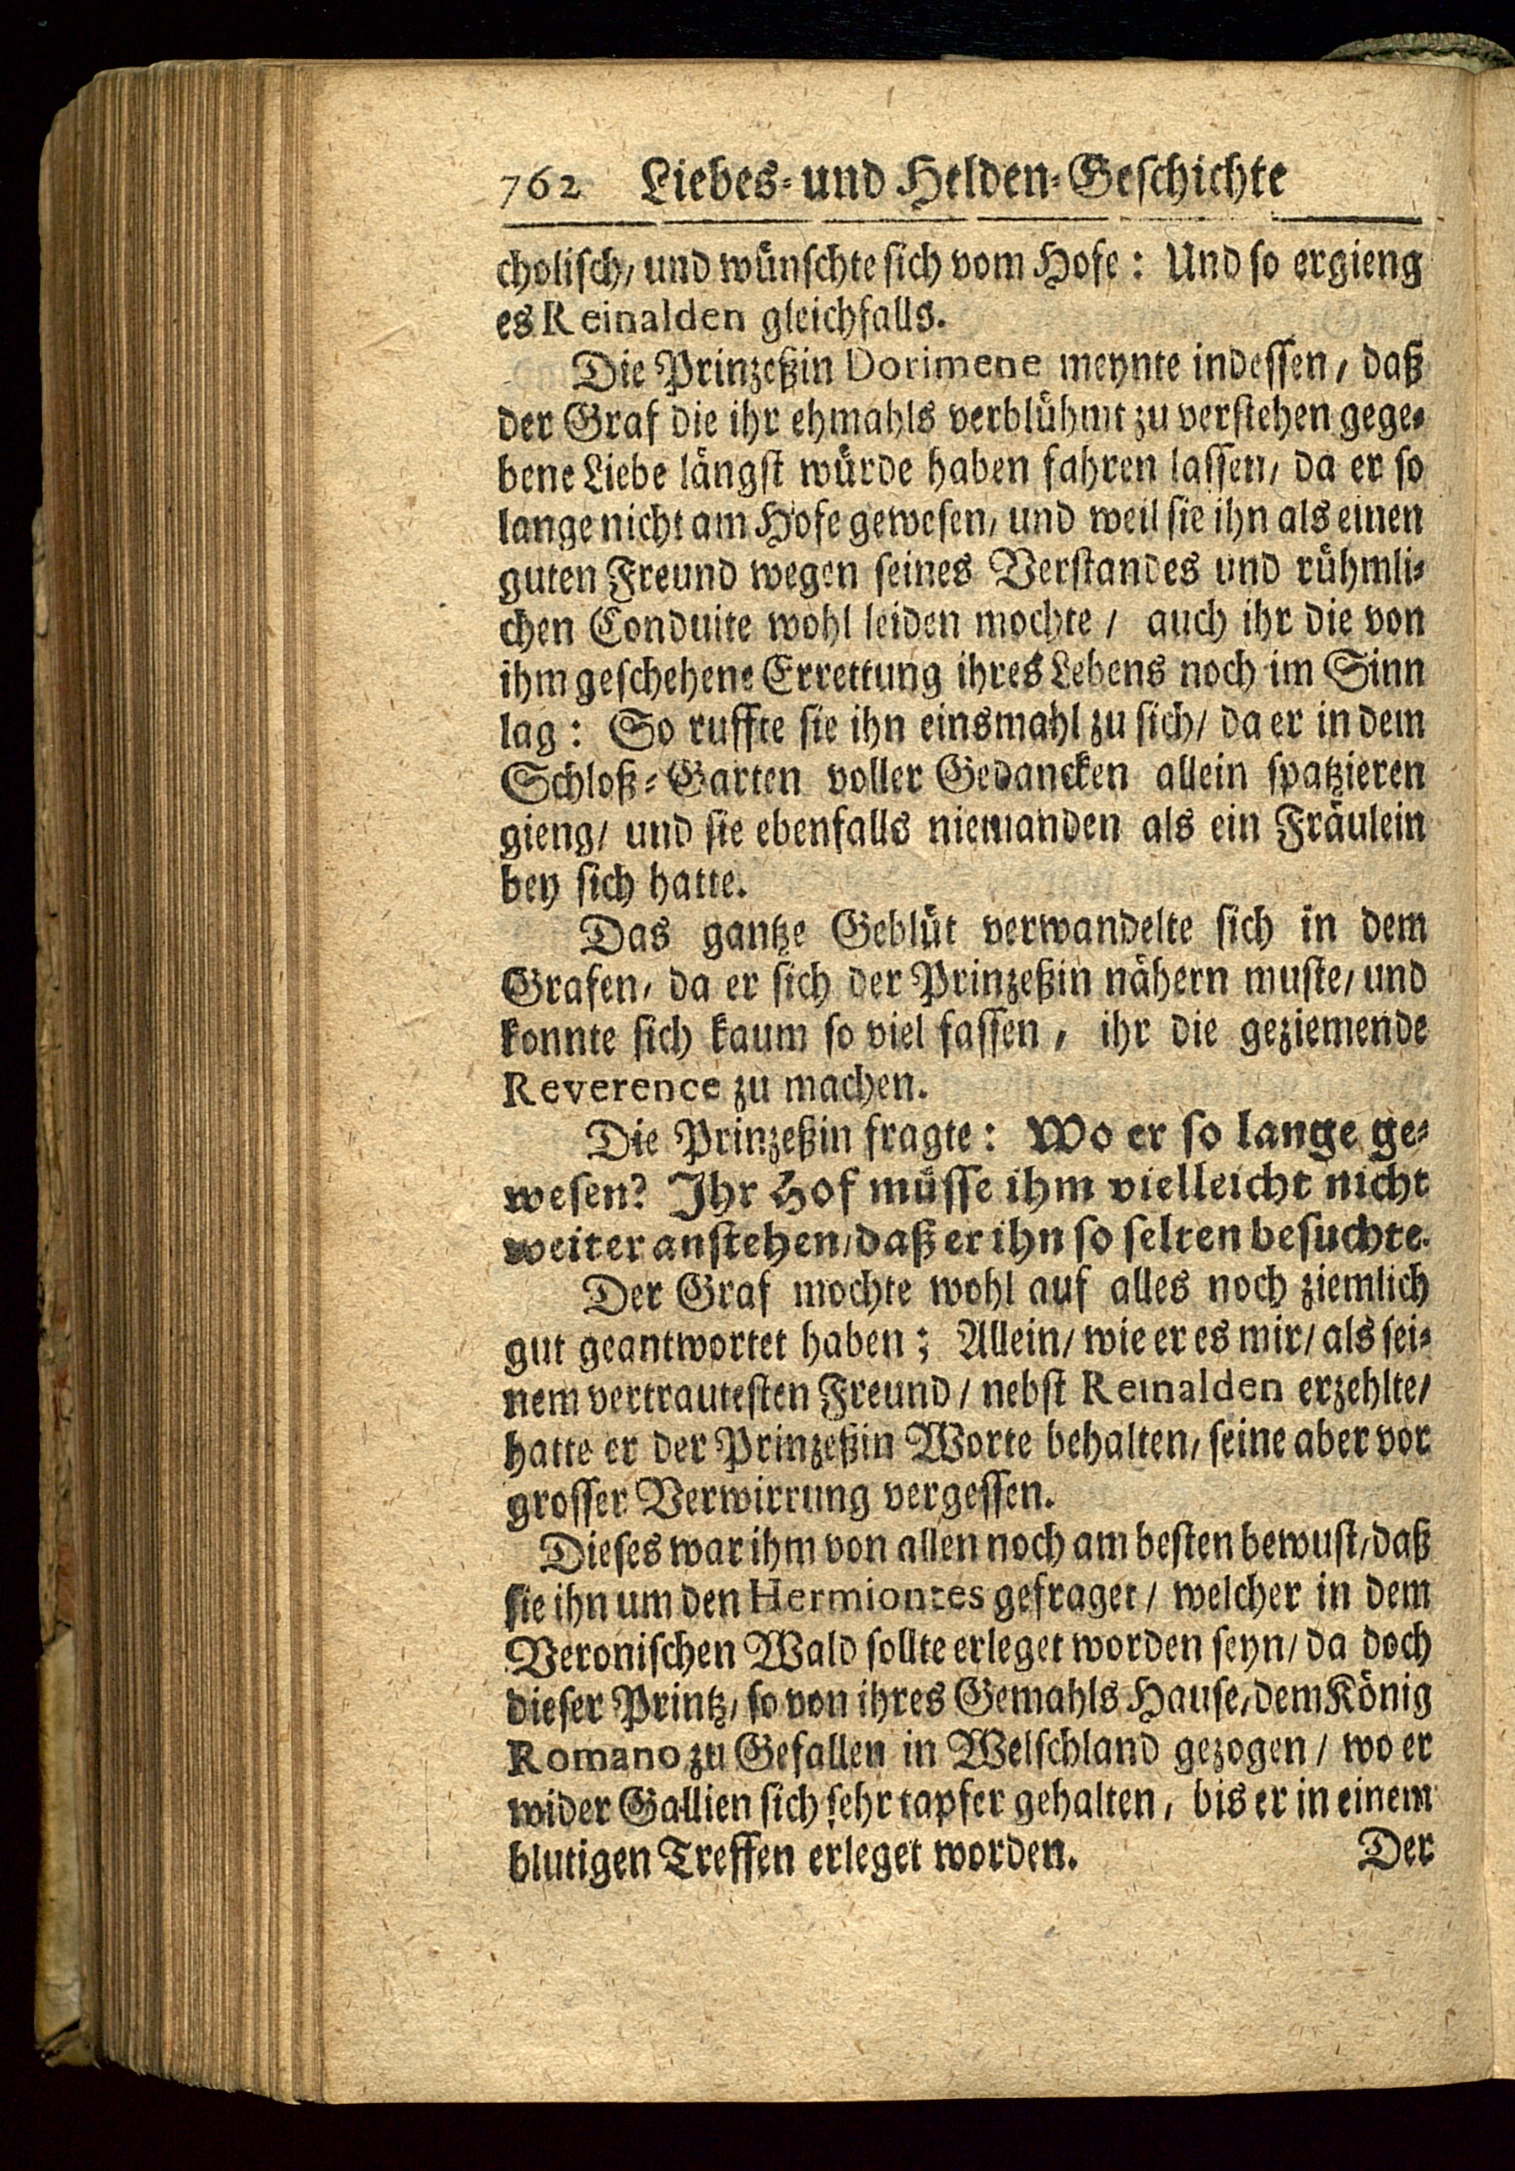 762 Liebes-und Helden-Geschichte
cholisch/ und wünschte sich vom Hofe: Und so ergieng
es Reinalden gleichfalls.
Die Prinzeßin Dorimene meynte indessen/ daß
der Graf die ihr ehmahls verblühmt zu verstehen gege-
bene Liebe längst würde haben fahren lassen/ da er so
lange nicht am Hofe gewesen/ und weil sie ihn als einen
guten Freund wegen seines Verstandes und rühmli-
chen Conduite wohl leiden mochte/ auch ihr die von
ihm geschehene Errettung ihres Lebens noch im Sinn
lag: So ruffte sie ihn einsmahl zu sich/ da er in dem
Schloß-Garten voller Gedancken allein spatzieren
gieng/ und sie ebenfalls niemanden als ein Fräulein
bey sich hatte.
Das gantze Geblüt verwandelte sich in dem
Grafen/ da er sich der Prinzeßin nähern muste/ und
konnte sich kaum so viel fassen/ ihr die geziemende
Reverence zu machen.
Die Prinzeßin fragte: Wo er so lange ge-
wesen? Ihr Hof müsse ihm vielleicht nicht
weiter anstehen/ daß er ihn so selten besuchte.
Der Graf mochte wohl auf alles noch ziemlich
gut geantwortet haben; Allein/ wie er es mir/ als sei-
nem vertrautesten Freund/ nebst Reinalden erzehlte/
hatte er der Prinzeßin Worte behalten/ seine aber vor
grosser Verwirrung vergessen.
Dieses war ihm von allen noch am besten bewust/ daß
sie ihn um den Hermiontes gefraget/ welcher in dem
Veronischen Wald sollte erleget worden seyn/ da doch
dieser Printz/ so von ihres Gemahls Hause/ dem König
Romano zu Gefallen in Welschland gezogen/ wo er
wider Gallien sich sehr tapfer gehalten/ bis er in einem
blutigen Treffen erleget worden. Der